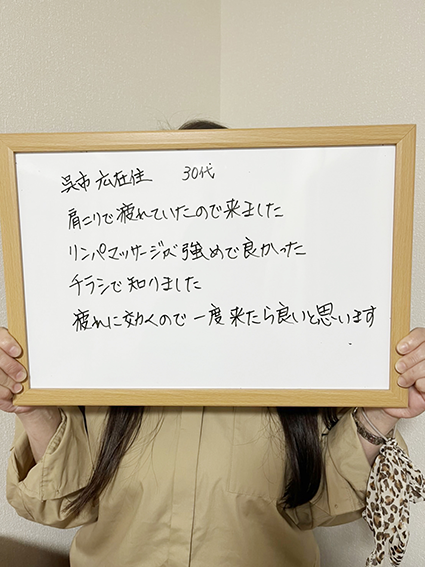 呉市広在住 30代
肩こりで疲れていたので来ました
リンパマッサージが強めで良かった
チラシで知りました
疲れに効くので一度来たら良いと思います